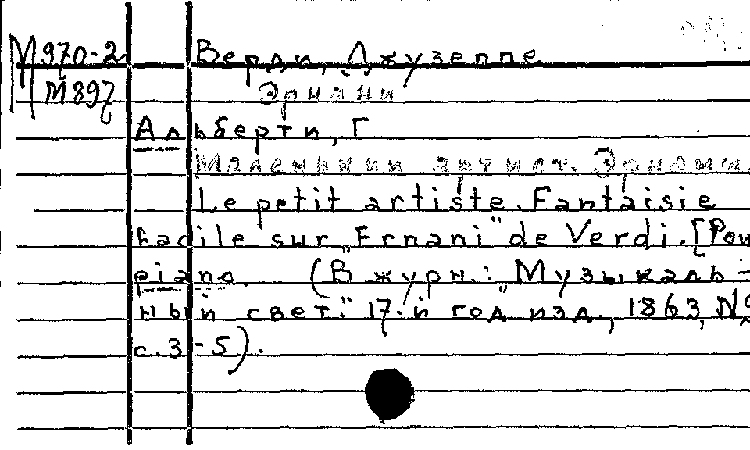 М970-2 Верди, Джузеппе
М897 Эрнани
Альберти, Г
Маленький артист. Эрнани.
Le petit artiste. Fantaisie
facile sur "Ernani" de Verdi. [Pour
piano. (В журн.: "Музыкаль-
ный свет." 17-й год изд., 1863, №
с.3-5).